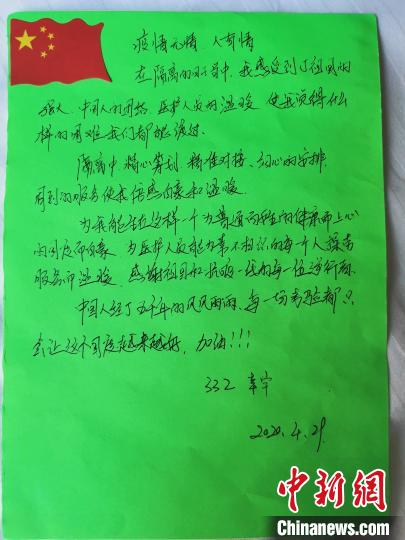 疫情无情，人有情
在隔离的日子中，我感受到了祖国的
强大，中国人的团结，医护人员的温暖，使我觉得什么
样的困难我们都能渡过.
隔离中，精心筹划，精准对接，细心的安排，
周到的服务使我倍感自豪和温暖.
为我能生在这样一个为普通百姓的健康而上心
的国度而自豪，为医护人员能为素不相识的每个人操劳
服务而温暖，感谢祖国和抗疫一线的每一位逆行者.
中国人经了五千年的风风雨雨，每一场考验都只
会让这个国度越来越好，加油!!!
332 宇
2020.4.29.
中新网
Chinanews.com